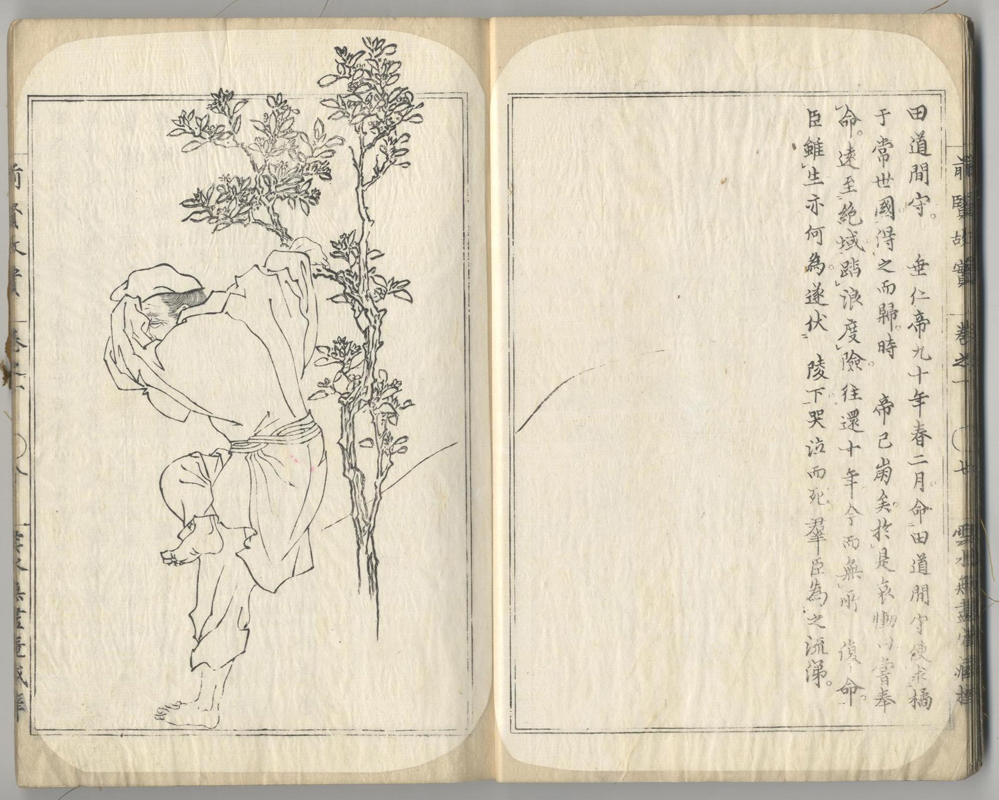 田道間守。　垂仁帝九十年春二月命田道間守使求橘
于常世國得之而歸時　帝已崩矣於是哀慟曰嘗奉
命遠至絶域蹈浪度險往還十年今而無所　復命
臣雖生亦何為遂伏　陵下哭泣而死羣臣為之流涕。
前賢故實　卷之一　〇七　雲水無盡庵藏梓
前賢故實　卷之一　〇八　雲水無盡庵藏梓